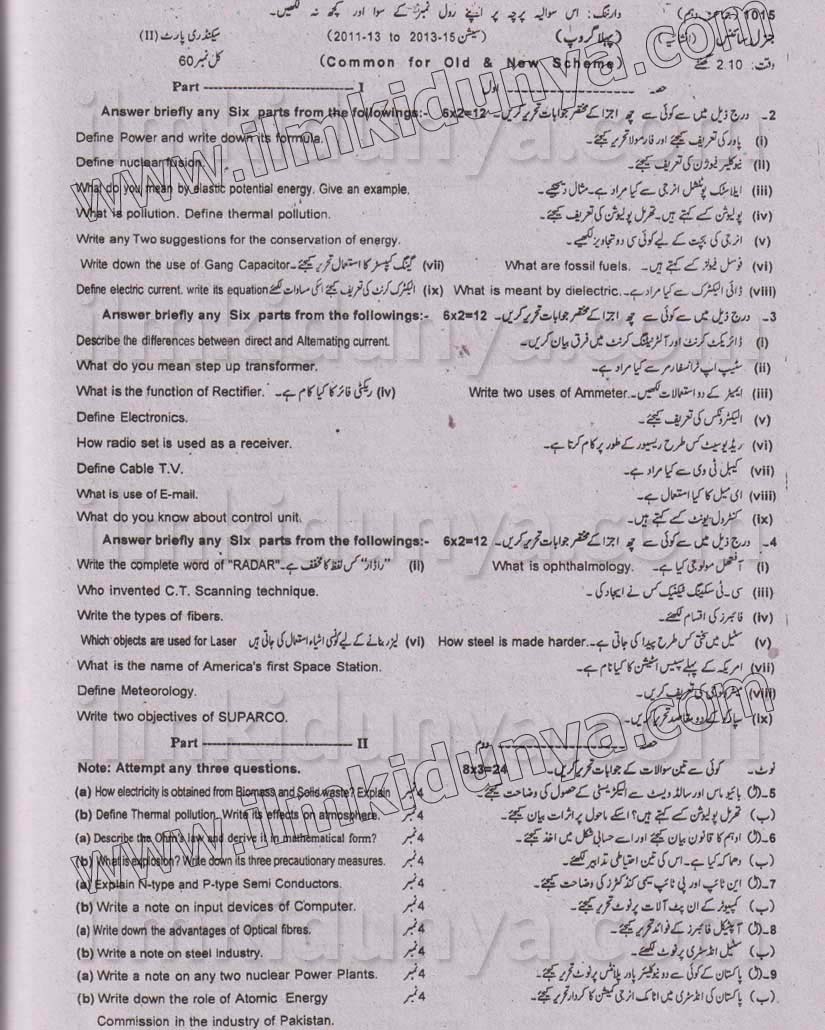 وارننگ: اس سوالیہ پرچہ پر اپنے رول نمبر کے سوا اور کچھ نہ لکھیں۔ 1015
جنرل سائنس (پہلا گروپ) (سیشن 2011-13 to 2013-15) سیکنڈری پارٹ (II)
وقت: 2.10 گھنٹے (Common for Old & New Scheme) کل نمبر 60
Part I حصہ اول
Answer briefly any Six parts from the followings:- 6x2=12 2۔ درج ذیل میں سے کوئی سے چھ اجزا کے مختصر جوابات تحریر کریں۔
Define Power and write down its formula. (i) پاور کی تعریف کیجئے اور فارمولا تحریر کیجئے۔
Define nuclear fusion. (ii) نیوکلیئر فیوژن کی تعریف کیجئے۔
What do you mean by elastic potential energy. Give an example. (iii) ایلاسٹک پوٹینشل انرجی سے کیا مراد ہے۔ مثال دیجیے۔
What is pollution. Define thermal pollution. (iv) پولیوشن کسے کہتے ہیں۔ تھرمل پولیوشن کی تعریف کیجئے۔
Write any Two suggestions for the conservation of energy. (v) انرجی کی بچت کے لیے کوئی سی دو تجاویز لکھیے۔
Write down the use of Gang Capacitor. گینگ کپیسٹر کا استعمال تحریر کیجئے۔ (vii) What are fossil fuels. (vi) فوسل فیولز کسے کہتے ہیں۔
Define electric current. write its equation الیکٹرک کرنٹ کی تعریف کیجئے اسکی مساوات لکھئے (ix) What is meant by dielectric. (viii) ڈائی الیکٹرک سے کیا مراد ہے۔
Answer briefly any Six parts from the followings:- 6x2=12 3۔ درج ذیل میں سے کوئی سے چھ اجزا کے مختصر جوابات تحریر کریں۔
Describe the differences between direct and Alternating current. (i) ڈائریکٹ کرنٹ اور آلٹرنیٹنگ کرنٹ میں فرق بیان کریں۔
What do you mean step up transformer. (ii) سٹیپ اپ ٹرانسفارمر سے کیا مراد ہے۔
What is the function of Rectifier. ریکٹی فائر کا کیا کام ہے۔ (iv) Write two uses of Ammeter. (iii) ایمیٹر کے دو استعمالات لکھیں۔
Define Electronics. (v) الیکٹرونکس کی تعریف کیجئے۔
How radio set is used as a receiver. (vi) ریڈیو سیٹ کس طرح ریسیور کے طور پر کام کرتا ہے۔
Define Cable T.V. (vii) کیبل ٹی وی سے کیا مراد ہے۔
What is use of E-mail. (viii) ای میل کا کیا استعمال ہے۔
What do you know about control unit. (ix) کنٹرول یونٹ کسے کہتے ہیں۔
Answer briefly any Six parts from the followings:- 6x2=12 4۔ درج ذیل میں سے کوئی سے چھ اجزا کے مختصر جوابات تحریر کریں۔
Write the complete word of "RADAR". "راڈار" کس لفظ کا مخفف ہے۔ (ii) What is ophthalmology. (i) آفتھلمولوجی کیا ہے۔
Who invented C.T. Scanning technique. (iii) سی۔ٹی سکیننگ ٹیکنیک کس نے ایجاد کی۔
Write the types of fibers. (iv) فائبرز کی اقسام لکھئے۔
Which objects are used for Laser لیزر بنانے کے لیے کونسی اشیاء استعمال کی جاتی ہیں (vi) How steel is made harder. (v) سٹیل میں سختی کس طرح پیدا کی جاتی ہے۔
What is the name of America's first Space Station. (vii) امریکہ کے پہلے سپیس اسٹیشن کا کیا نام ہے۔
Define Meteorology. (viii) میٹرولوجی کی تعریف کریں۔
Write two objectives of SUPARCO. (ix) سپارکو کے دو مقاصد تحریر کریں۔
Part II حصہ دوم
Note: Attempt any three questions. 8x3=24 نوٹ۔ کوئی سے تین سوالات کے جوابات تحریر کریں۔
(a) How electricity is obtained from Biomass and Solid waste? Explain 4نمبر 5۔(ا) بائیو ماس اور سالڈ ویسٹ سے الیکٹریسٹی کے حصول کی وضاحت کیجئے۔
(b) Define Thermal pollution. Write its effects on atmosphere. 4نمبر (ب) تھرمل پولیوشن کسے کہتے ہیں؟ اسکے ماحول پر اثرات بیان کیجئے۔
(a) Describe the Ohm's law and derive it in mathematical form? 4نمبر 6۔(ا) اوہم کا قانون بیان کیجئے اور اسے حسابی شکل میں اخذ کیجئے۔
(b) What is explosion? Write down its three precautionary measures. 4نمبر (ب) دھماکہ کیا ہے۔ اس کی تین احتیاطی تدابیر لکھئے۔
(a) Explain N-type and P-type Semi Conductors. 4نمبر 7۔(ا) این ٹائپ اور پی ٹائپ سیمی کنڈکٹرز کی وضاحت کیجئے۔
(b) Write a note on input devices of Computer. 4نمبر (ب) کمپیوٹر کے ان پٹ آلات پر نوٹ تحریر کیجئے۔
(a) Write down the advantages of Optical fibres. 4نمبر 8۔(ا) آپٹیکل فائبرز کے فوائد تحریر کیجئے۔
(b) Write a note on steel Industry. 4نمبر (ب) سٹیل انڈسٹری پر نوٹ لکھئے۔
(a) Write a note on any two nuclear Power Plants. 4نمبر 9۔(ا) پاکستان کے کوئی سے دو نیوکلیئر پاور پلانٹس پر نوٹ تحریر کیجئے۔
(b) Write down the role of Atomic Energy 4نمبر (ب) پاکستان کی انڈسٹری میں اٹامک انرجی کمیشن کا کردار تحریر کیجئے۔
Commission in the industry of Pakistan.
www.ilmkidunya.com
www.ilmkidunya.com